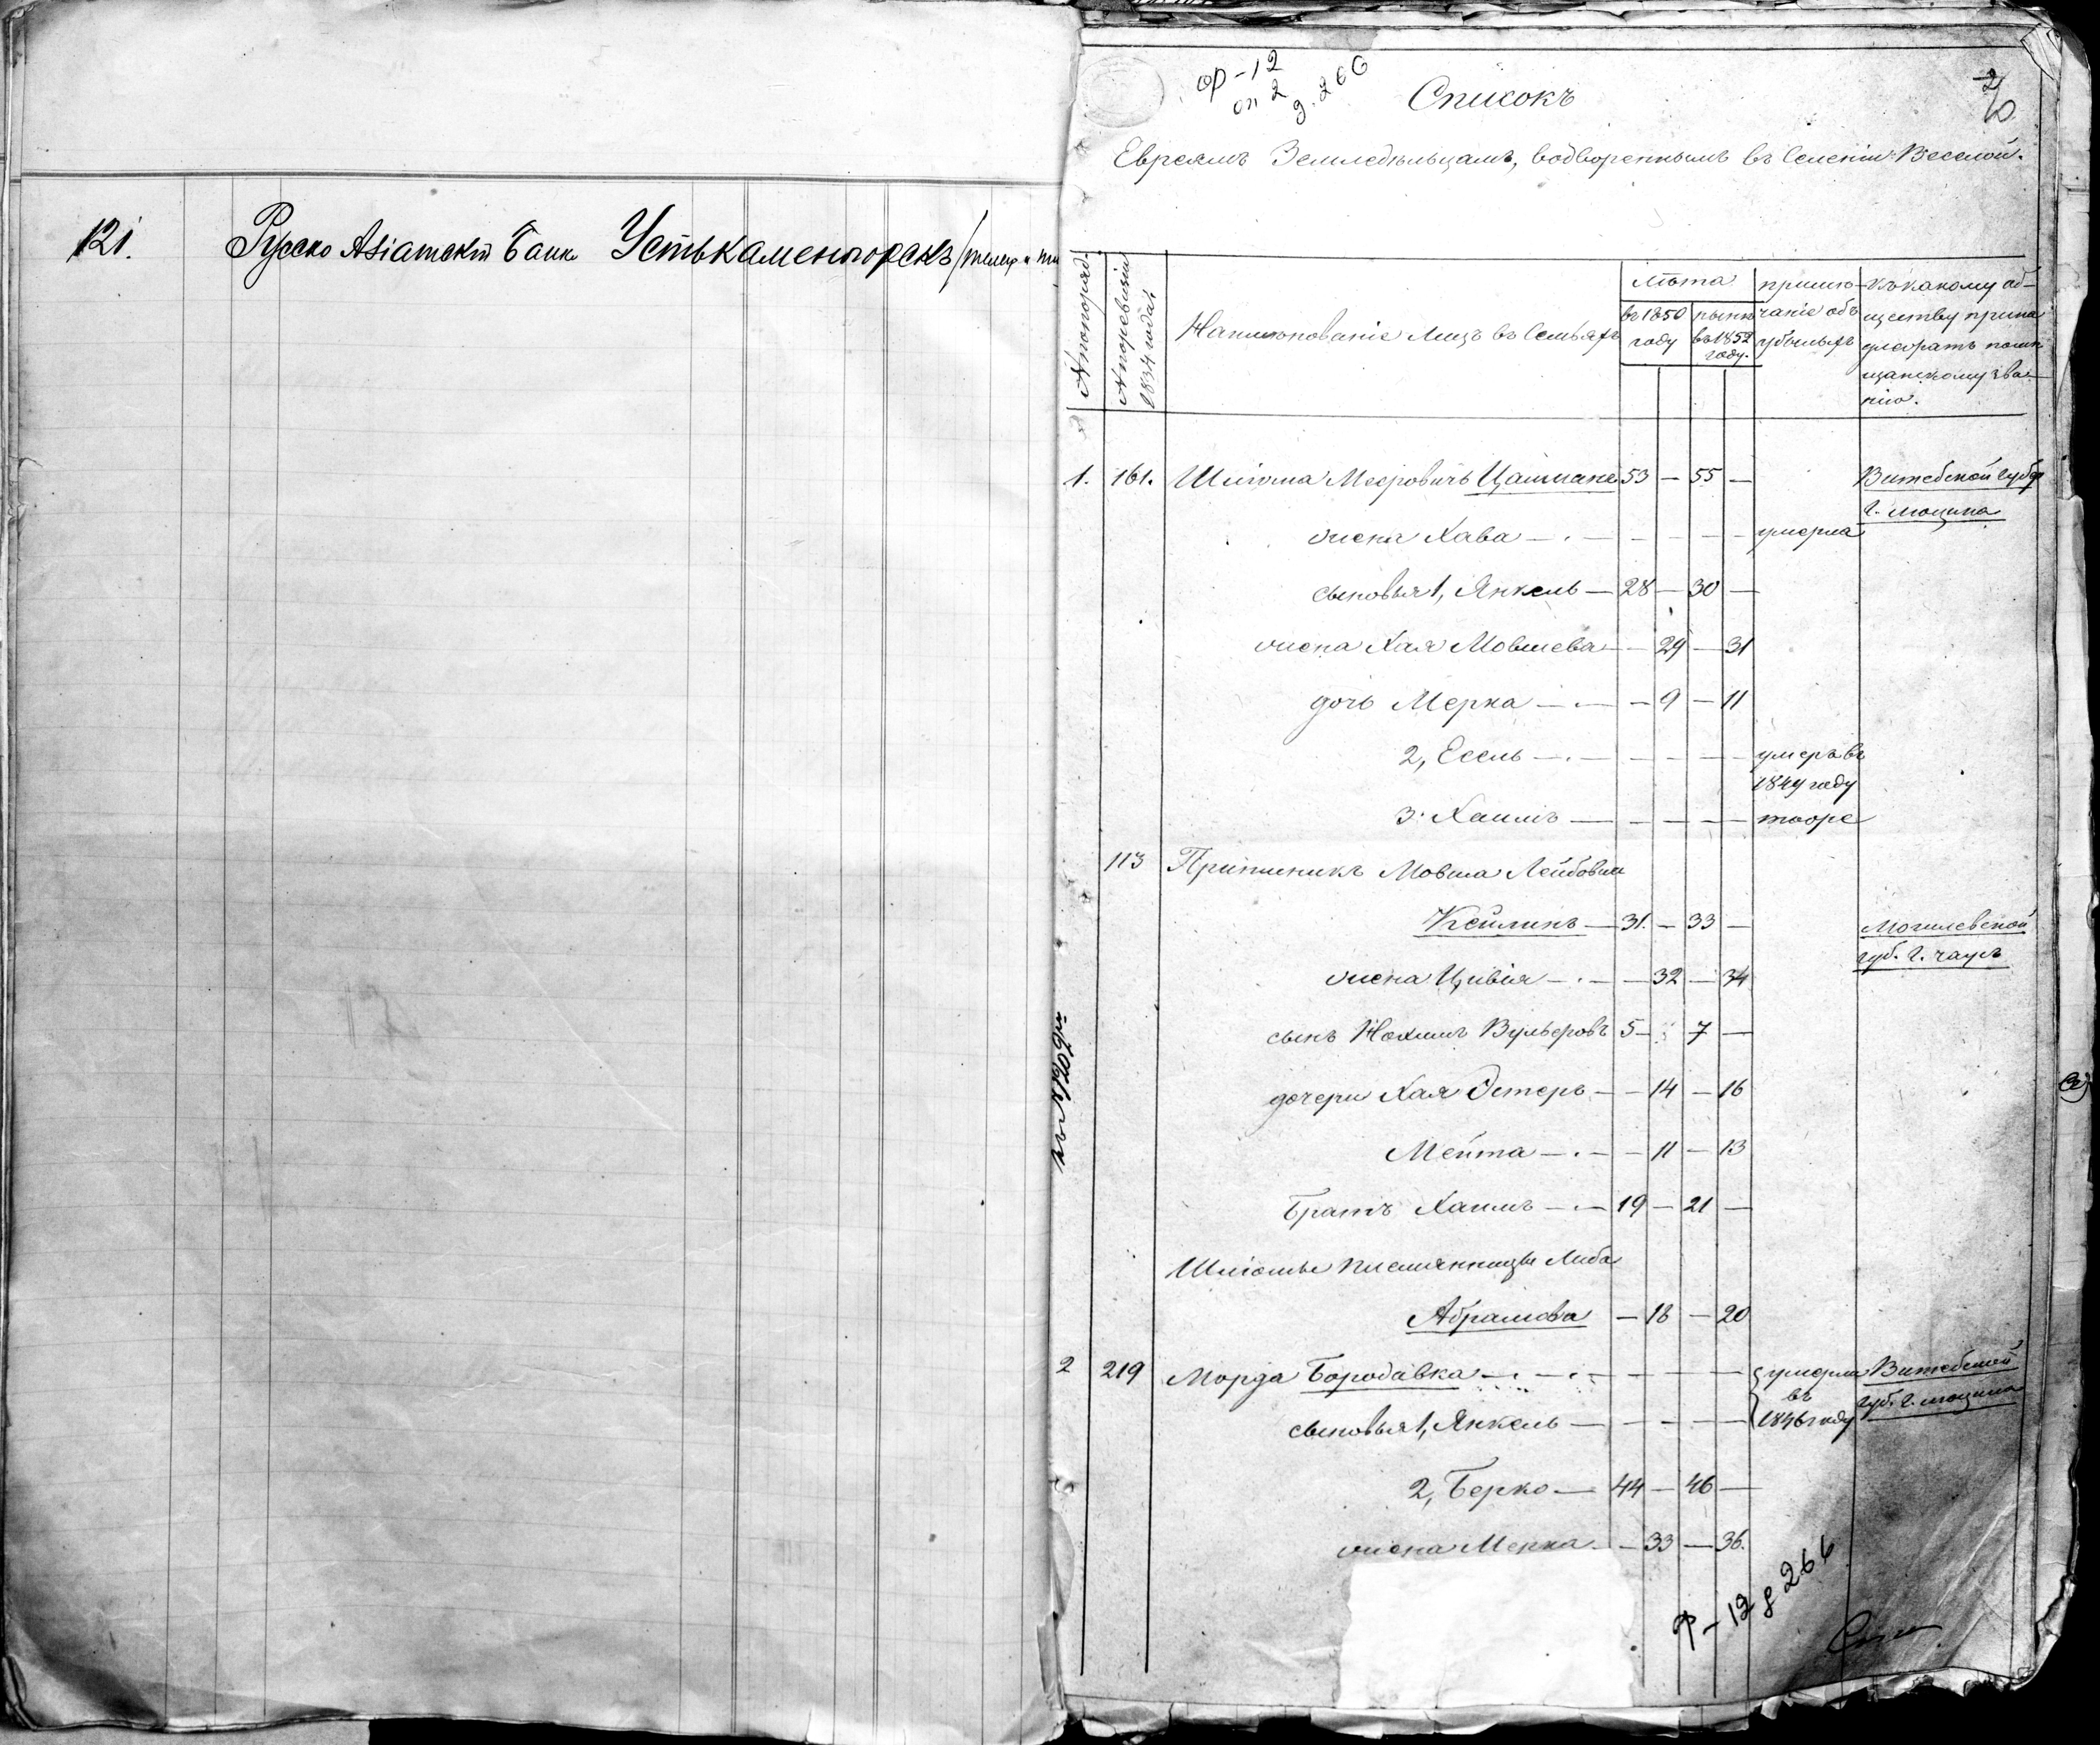 121. Русско Азіатскій Банк Устькаменогорскъ
ф-12
оп 2
д. 266
2
Списокъ
Евреямъ Земледѣльцамъ, водвореннымъ въ Селеніи Веселой.
№ по поряд.
№ по ревизіи 1834 года
Наименованіе лицъ въ Семьяхъ
лѣта
въ 1850 году
нынѣ въ 1852 году.
примѣчаніе объ убылыхъ
къ какому обществу принадлежатъ по мѣщанскому званію.
1. 161. Шліома Мееровичъ Цайтмане 53 — 55 — Витебской Губер
г. Люцина
жена Хава — . — — — — умерла
сыновья 1, Янкель — 28 — 30 —
жена Хая Мовшева — 29 — 31
дочь Мерка — . — — 9 — 11
2, Есель — . — — — — умеръ въ
1849 году
3. Хаимъ — — — — — тоже
113 Приимикъ Мовша Лейбовъ
Кейлинъ — 31. — 33 — Могилевской
губ. г. Чаусъ
жена Цивія — . — — 32 — 34
сынъ Нохимъ Вульфовъ 5 — 7 —
дочери Хая Эстеръ — — 14 — 16
Мейта — . — — 11 — 13
Братъ Хаимъ — . — 19 — 21 —
Шліомы племянница Либа
Абрамова — 18 — 20
2 219 Морда Бородавка — . — . — — — — умерли Витебской
въ губ. г. Люцина
сыновья 1, Янкель — — — — — 1846 году
2, Берко — 44 — 46 —
жена Мерка — — 33 — 36.
ф-12 д 266